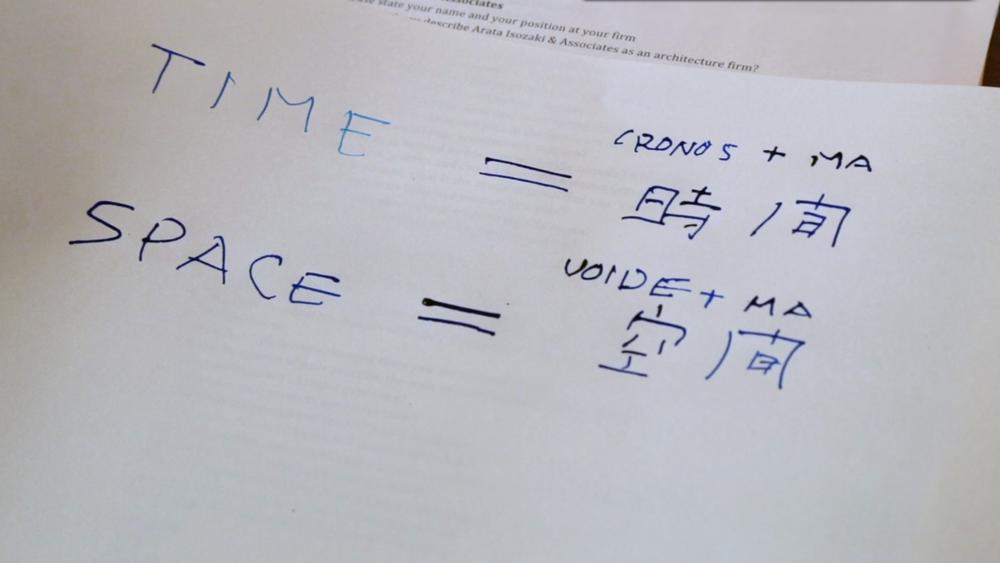 Associates
state your name and your position at your firm
describe Arata Isozaki & Associates as an architecture firm?
TIME = CRONOS + MA
時間
SPACE = VOIDE + MA
空間